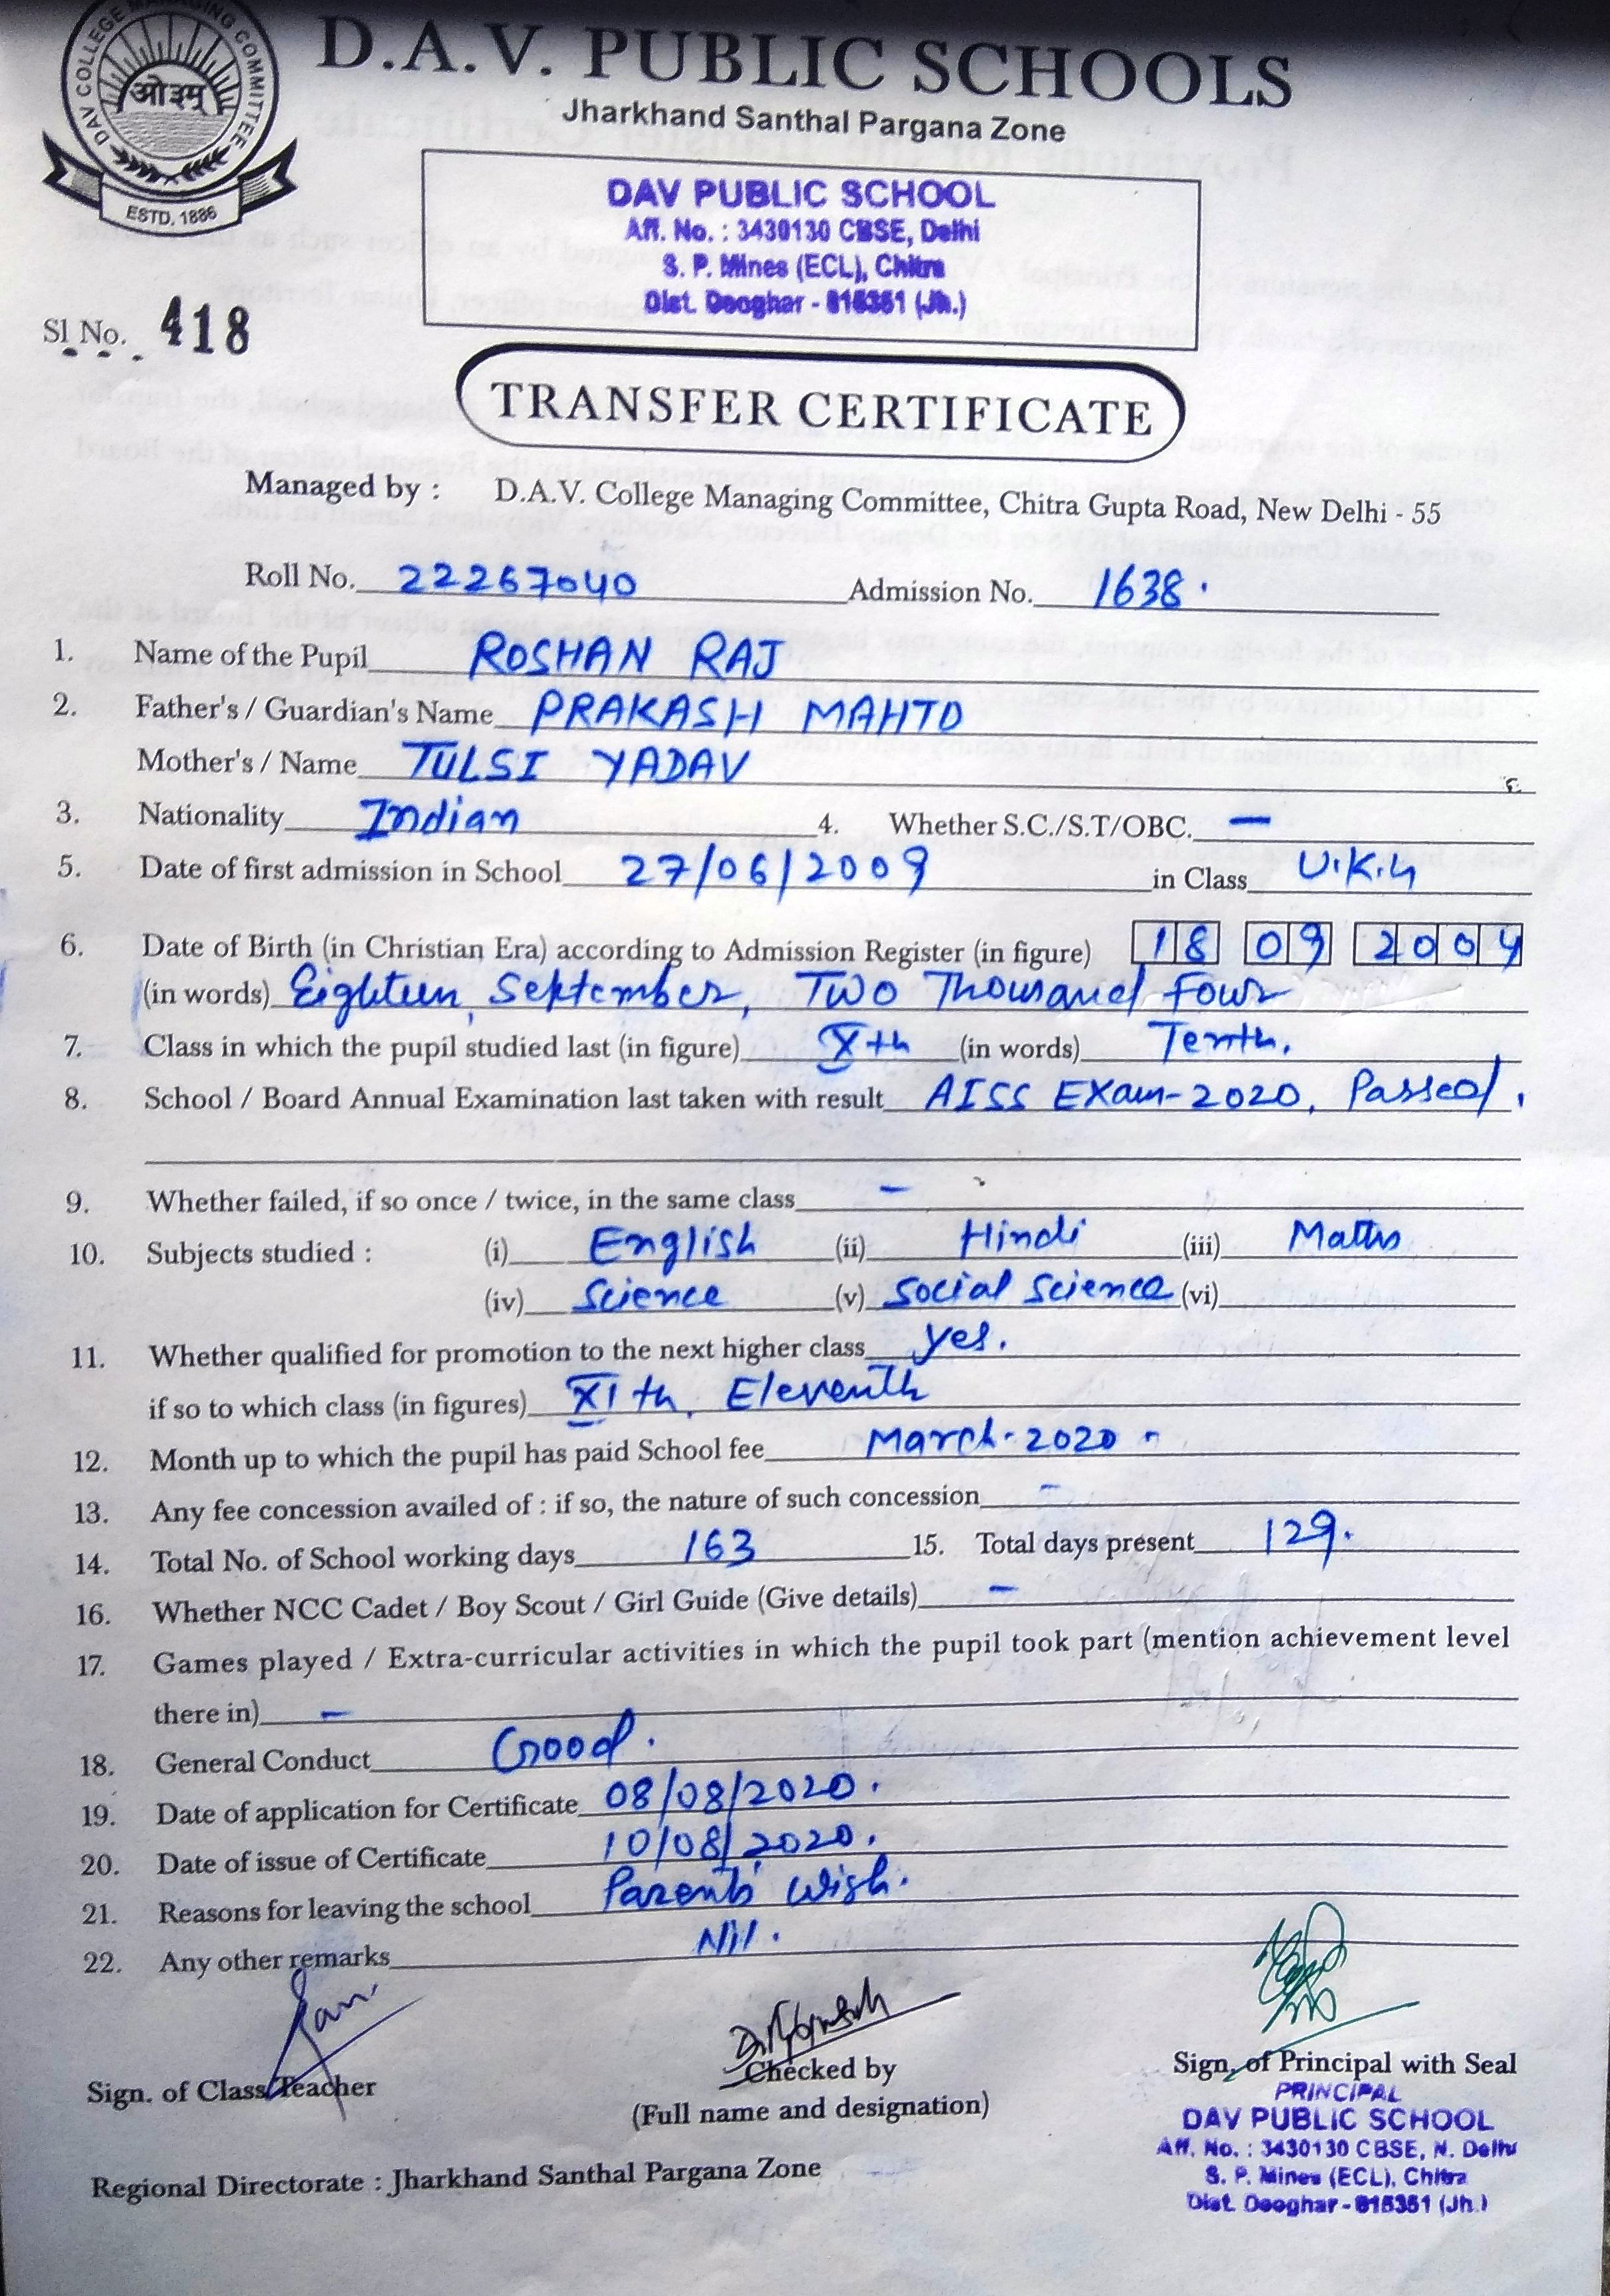 DAV COLLEGE MANAGING COMMITTEE
ओ३म्
ESTD. 1886
D.A.V. PUBLIC SCHOOLS
Jharkhand Santhal Pargana Zone
DAV PUBLIC SCHOOL
Aff. No. : 3430130 CBSE, Delhi
S. P. Mines (ECL), Chitra
Dist. Deoghar - 815351 (Jh.)
Sl No. 418
TRANSFER CERTIFICATE
Managed by : D.A.V. College Managing Committee, Chitra Gupta Road, New Delhi - 55
Roll No. 22267040 Admission No. 1638.
1. Name of the Pupil ROSHAN RAJ
2. Father's / Guardian's Name PRAKASH MAHTO
Mother's / Name TULSI YADAV
3. Nationality Indian 4. Whether S.C./S.T/OBC. —
5. Date of first admission in School 27/06/2009 in Class U.K.G
6. Date of Birth (in Christian Era) according to Admission Register (in figure) 18 09 2004
(in words) Eighteen, September, Two Thousand Four
7. Class in which the pupil studied last (in figure) Xth (in words) Tenth.
8. School / Board Annual Examination last taken with result AISS EXam-2020, Passed.
9. Whether failed, if so once / twice, in the same class –
10. Subjects studied : (i) English (ii) Hindi (iii) Maths
(iv) Science (v) Social Science (vi)
11. Whether qualified for promotion to the next higher class yes.
if so to which class (in figures) XIth, Eleventh
12. Month up to which the pupil has paid School fee March-2020 -
13. Any fee concession availed of : if so, the nature of such concession –
14. Total No. of School working days 163 15. Total days present 129.
16. Whether NCC Cadet / Boy Scout / Girl Guide (Give details) –
17. Games played / Extra-curricular activities in which the pupil took part (mention achievement level
there in) –
18. General Conduct Good.
19. Date of application for Certificate 08/08/2020.
20. Date of issue of Certificate 10/08/2020.
21. Reasons for leaving the school Parents' Wish.
22. Any other remarks Nil.
Sign. of Class Teacher
Checked by
(Full name and designation)
Sign. of Principal with Seal
PRINCIPAL
DAV PUBLIC SCHOOL
Aff. No. : 3430130 CBSE, N. Delhi
S. P. Mines (ECL), Chitra
Dist. Deoghar - 815351 (Jh.)
Regional Directorate : Jharkhand Santhal Pargana Zone